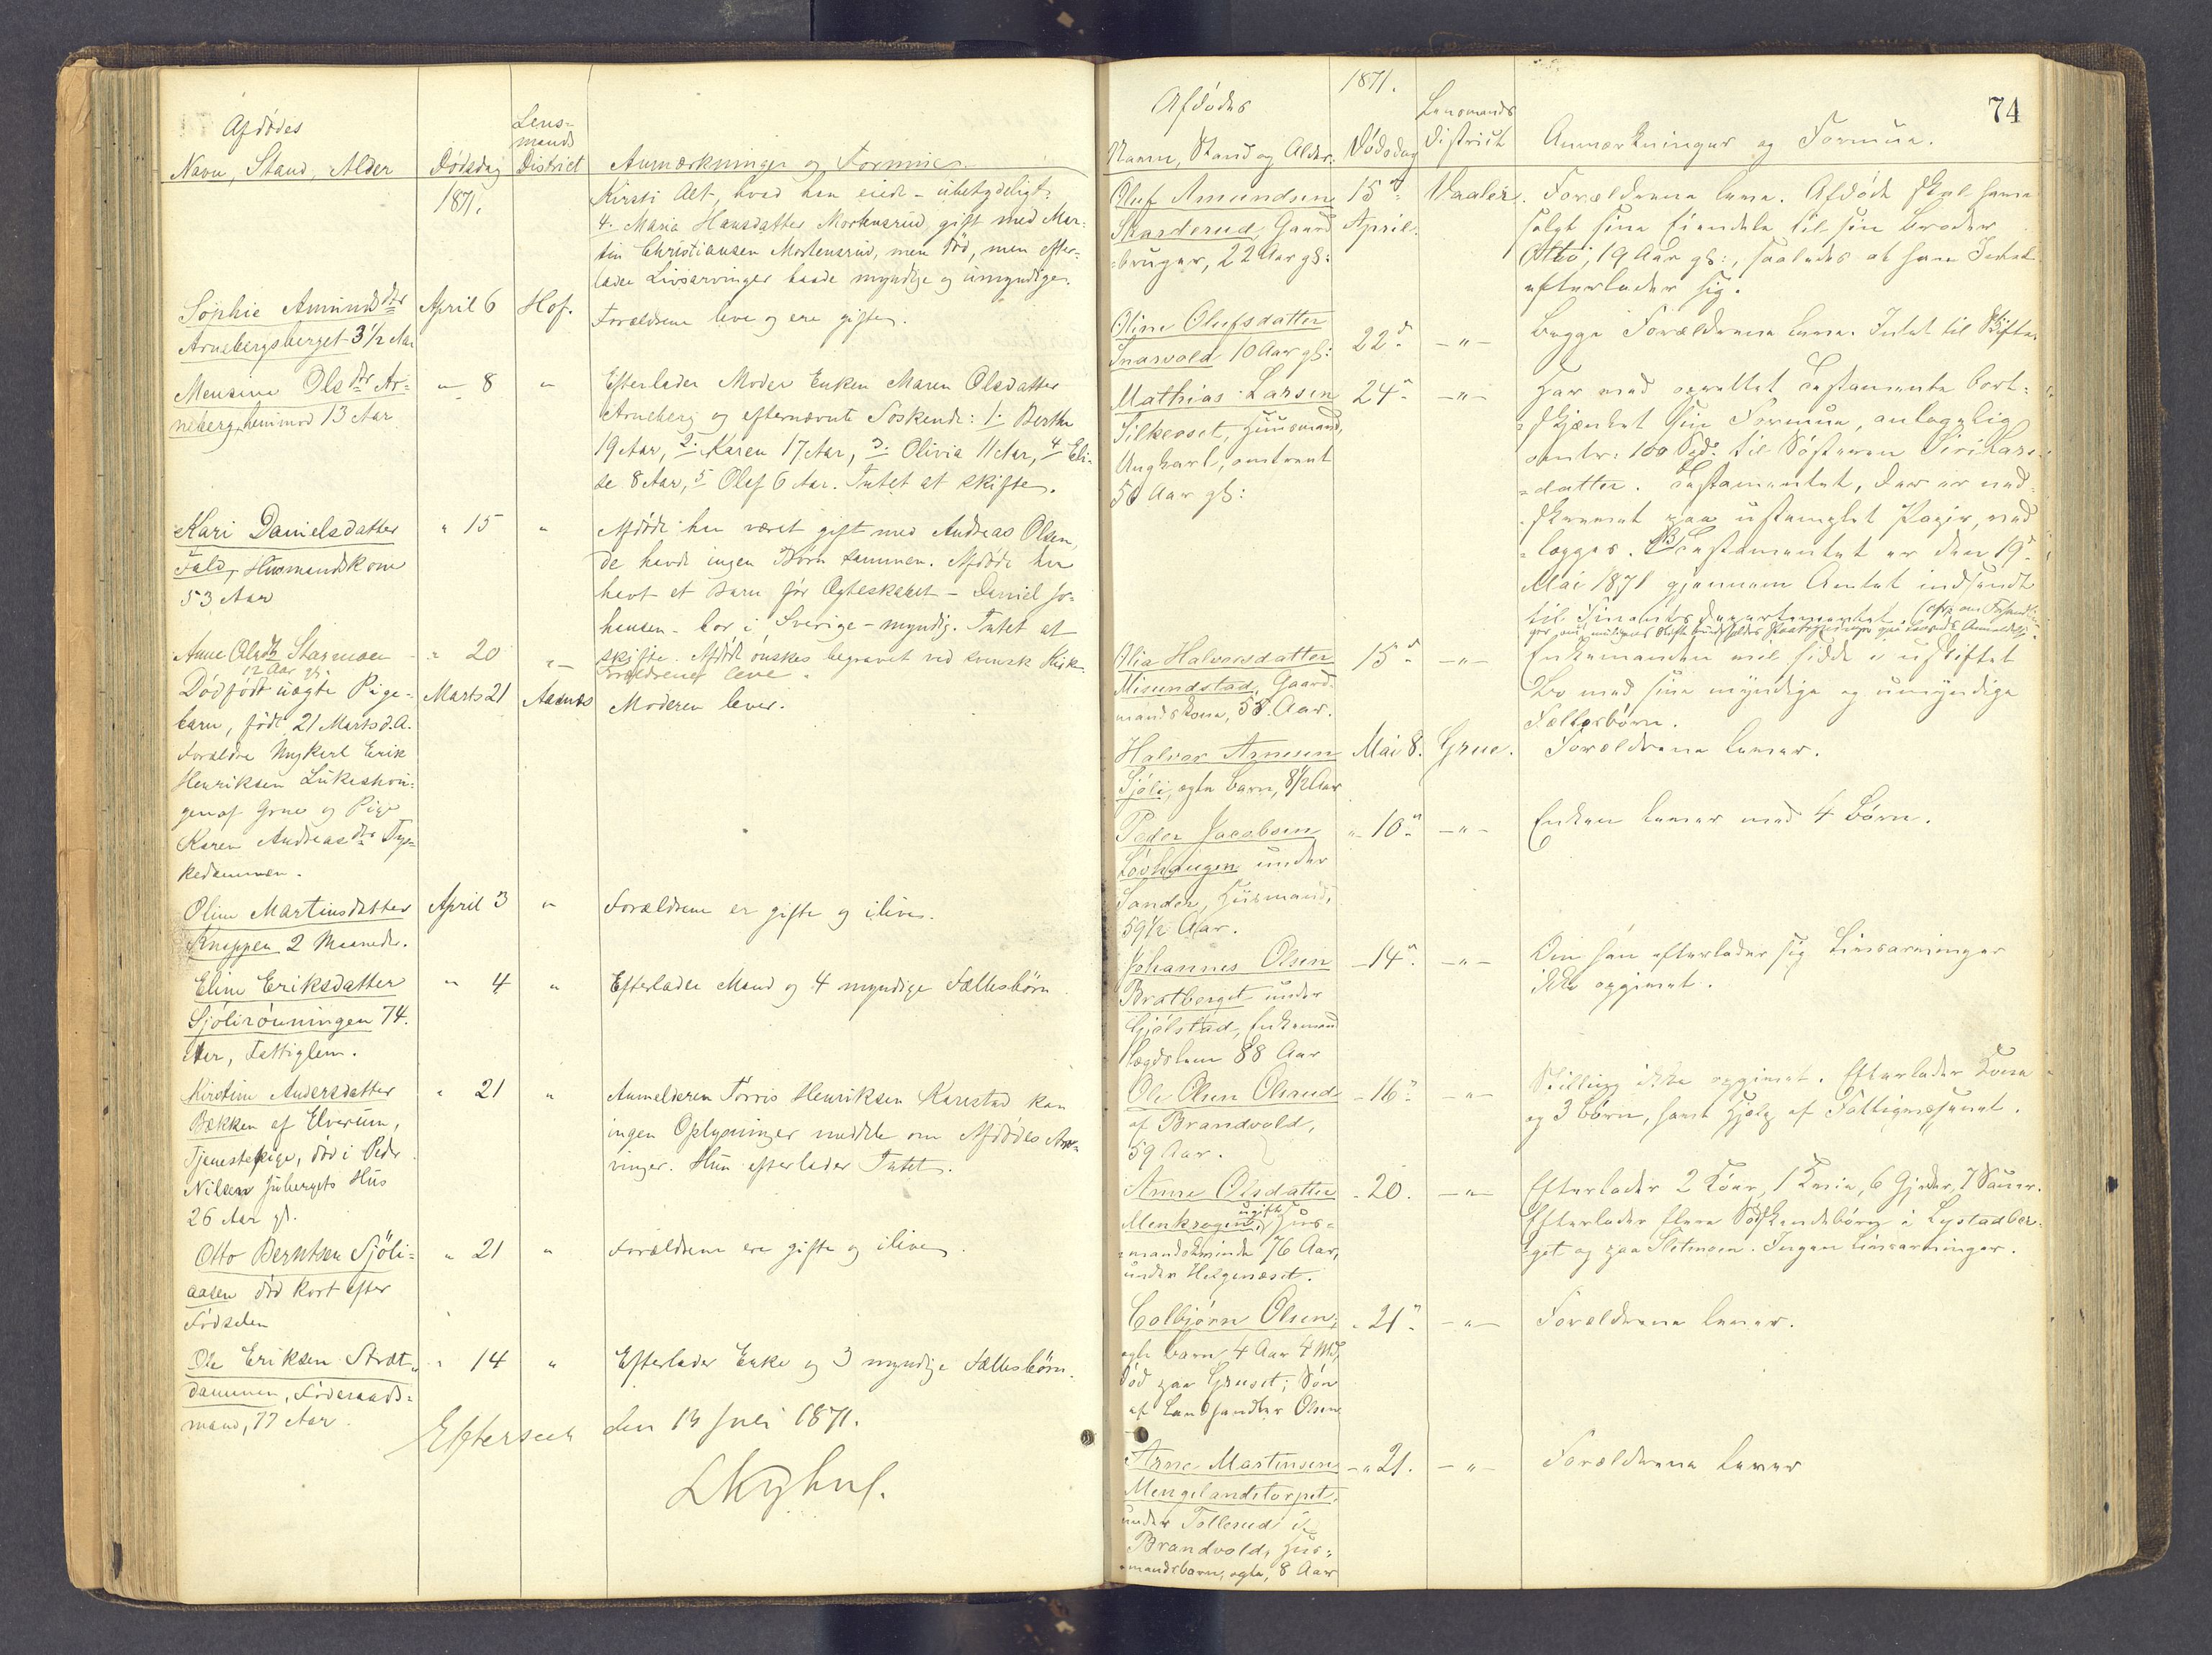 Afdödes
Navn, Stand, Alder
Dödsdag
Lens-
mands
District
Anmærkninger og Formue.
1871.
Kirsti Alt, hvad han eiede - ubetydeligt.
4. Maria Hansdatter Mortensrud, gift med Mar-
tin Christiansen Mortensrud, men död, men efter-
lader Livsarvinger baade myndige og umyndige.
Sophie Amundsdtr
Arnebergsberget 3 1/2 Aar
April 6
Hof.
Forældrene leve og ere gifte.
Mensine Olsdtr Ar-
neberg, henimod 13 Aar
" 8
"
Efterlader Moder Enken Maren Olsdatter
Arneberg og efternævnte Söskende: 1. Berthe
19 Aar, 2. Karen 17 Aar, 3. Olivia 11 Aar, 4 Eli-
se 8 Aar, 5 Olef 6 Aar. Intet at skifte.
Kari Danielsdatter
Fald, Husmandskone
53 Aar
" 15
"
Afdöde har været gift med Andreas Olsen,
de havde ingen Börn sammen. Afdöde har
havt et Barn för Ægteskabet - Daniel Jo-
hansen - bor i Sverige - myndig. Intet at
skifte. Afdöde önskes begravet ved svensk Kirk
Anne Olsdtr Starmoen
12 Aar gl.
" 20
"
Forældrene leve.
Dödfödt uægte Pige-
barn, födt 21 Marts d.A.
Forældre Ungkarl Erik
Henriksen Lukashon-
gen af Grue og Pige
Karen Andreasdtr Tys-
kedammen.
Marts 21
Aasnæs
Moderen lever.
Oline Martinsdatter
Knappen 2 Maaneder.
April 3
"
Forældrene er gifte og ilive.
Eline Eriksdatter
Sjölirönningen 74.
Aar, Fattiglem.
" 4
"
Efterlader Mand og 4 myndige Fællesbörn
Kirstine Andersdatter
Bækken af Elverum,
Tjenestepige, död i Peder
Nilsen Jubergets Hus
26 Aar gl.
" 21
"
Anmelderen Torris Henriksen Karestad kan
ingen Oplysninger meddele om Afdödes Ar-
vinger. Hun efterlader Intet.
Otto Berntsen Sjöli-
aasen död kort efter
Födselen
" 21
"
Forældrene ere gifte og ilive.
Ole Eriksen Stræt-
dammen, Föderaads-
mand, 77 Aar.
" 14
"
Efterlader Enke og 3 myndige Fællesbörn.
Efterseet den 13 Juli 1871.
74
1871.
Afdödes
Navn, Stand og Alder.
Dödsdag
Lensmands
District
Anmærkninger og Formue.
Oluf Amundsen
Skarderud, Gaard
bruger, 22 Aar gl:
15de
April.
Vaaler.
Forældrene leve. Afdöde skal have
solgt sine Eiendele til sin Broder
Otto, 19 Aar gl:, saaledes at han Intet
efterlader sig.
Oline Olufsdatter
Snarvold 10 Aar gl:
22de
-"-
Begge Forældrene leve. Intet til Skifte.
Mathias Larsen
Silkeoset, Huusmand,
Ungkarl, omtrent
50 Aar gl:
24de
-"-
Har med oprettet Testamente bort-
skjænket sin Formue, antagelig
omtr: 100 Spd. til Sösteren Siri Lars-
datter. Testamentet, der er ned-
skrevet paa ustemplet Papir, ved
lægges. Testamentet er den 19de
Mai 1871 gjennem Amtet indsendt
til Finantsdepartementet.
Alia Halvorsdatter
Misundstad, Gaard-
mandskone, 58 Aar.
15de
-"-
Enkemanden vil sidde i uskiftet
Bo med sine myndige og umyndige
Fællesbörn.
Halvor Arnesen
Sjöli, ægte Barn, 8 1/2 Aar
Mai 8.
Grue.
Forældrene lever.
Peder Jacobsen
Lövhaugen under
Sander, Huusmand,
59 1/2 Aar.
" 10de
-"-
Enken lever med 4 Börn.
Johannes Olsen
Bratberget under
Gjölstad, Enkemand
Lægdslem 88 Aar
- 14de
-"-
Om han efterlader sig Livsarvinger
ikke opgivet.
Ole Olsen Olsrud
af Brandvold,
59 Aar.
- 16de
-"-
Stilling ikke opgivet. Efterlader Kone
og 3 Börn, havt Hjælp af Fattigvæsenet.
Anne Olsdatter
Menkrogen, ugift Huus-
mandskvinde 76 Aar,
under Helgeneset.
- 20.
-"-
Efterlader 2 Köer, 1 Kvie, 6 Gjeder, 7 Sauer.
Efterlader flere Södskendebörn i Lystadber-
get og paa Sletmoen. Ingen Livsarvinger.
Colbjörn Olsen,
ægte Barn, 4 Aar 4 Md,
död paa Gruset; Sön
af Landhandler Olsen
- 21de
-"-
Forældrene lever.
Arne Martinsen
Mengelandstorpet,
under Tollerud i
Brandvold, Huus-
mandsbarn, ægte, 8 Aar
-" 21.
-"-
Forældrene lever